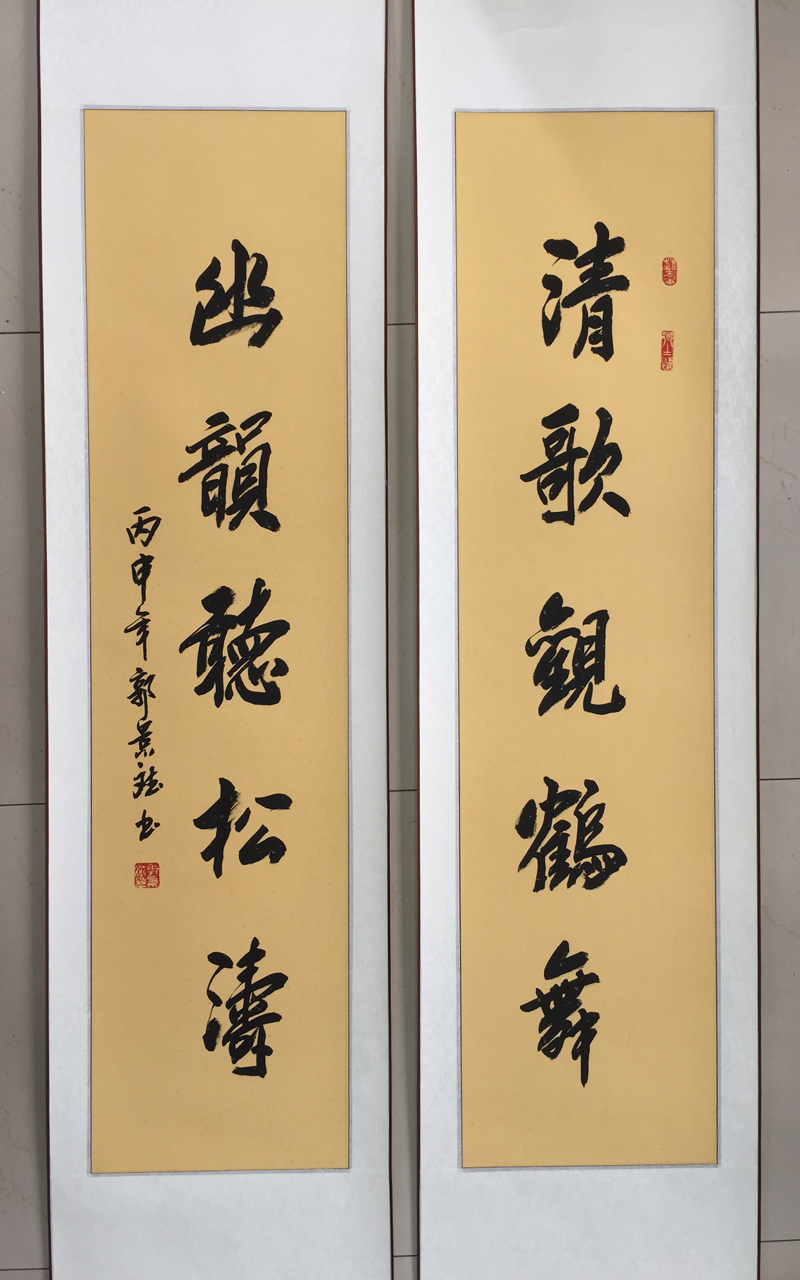 清歌觀鶴舞
幽韻聽松濤
丙申年郭景林書